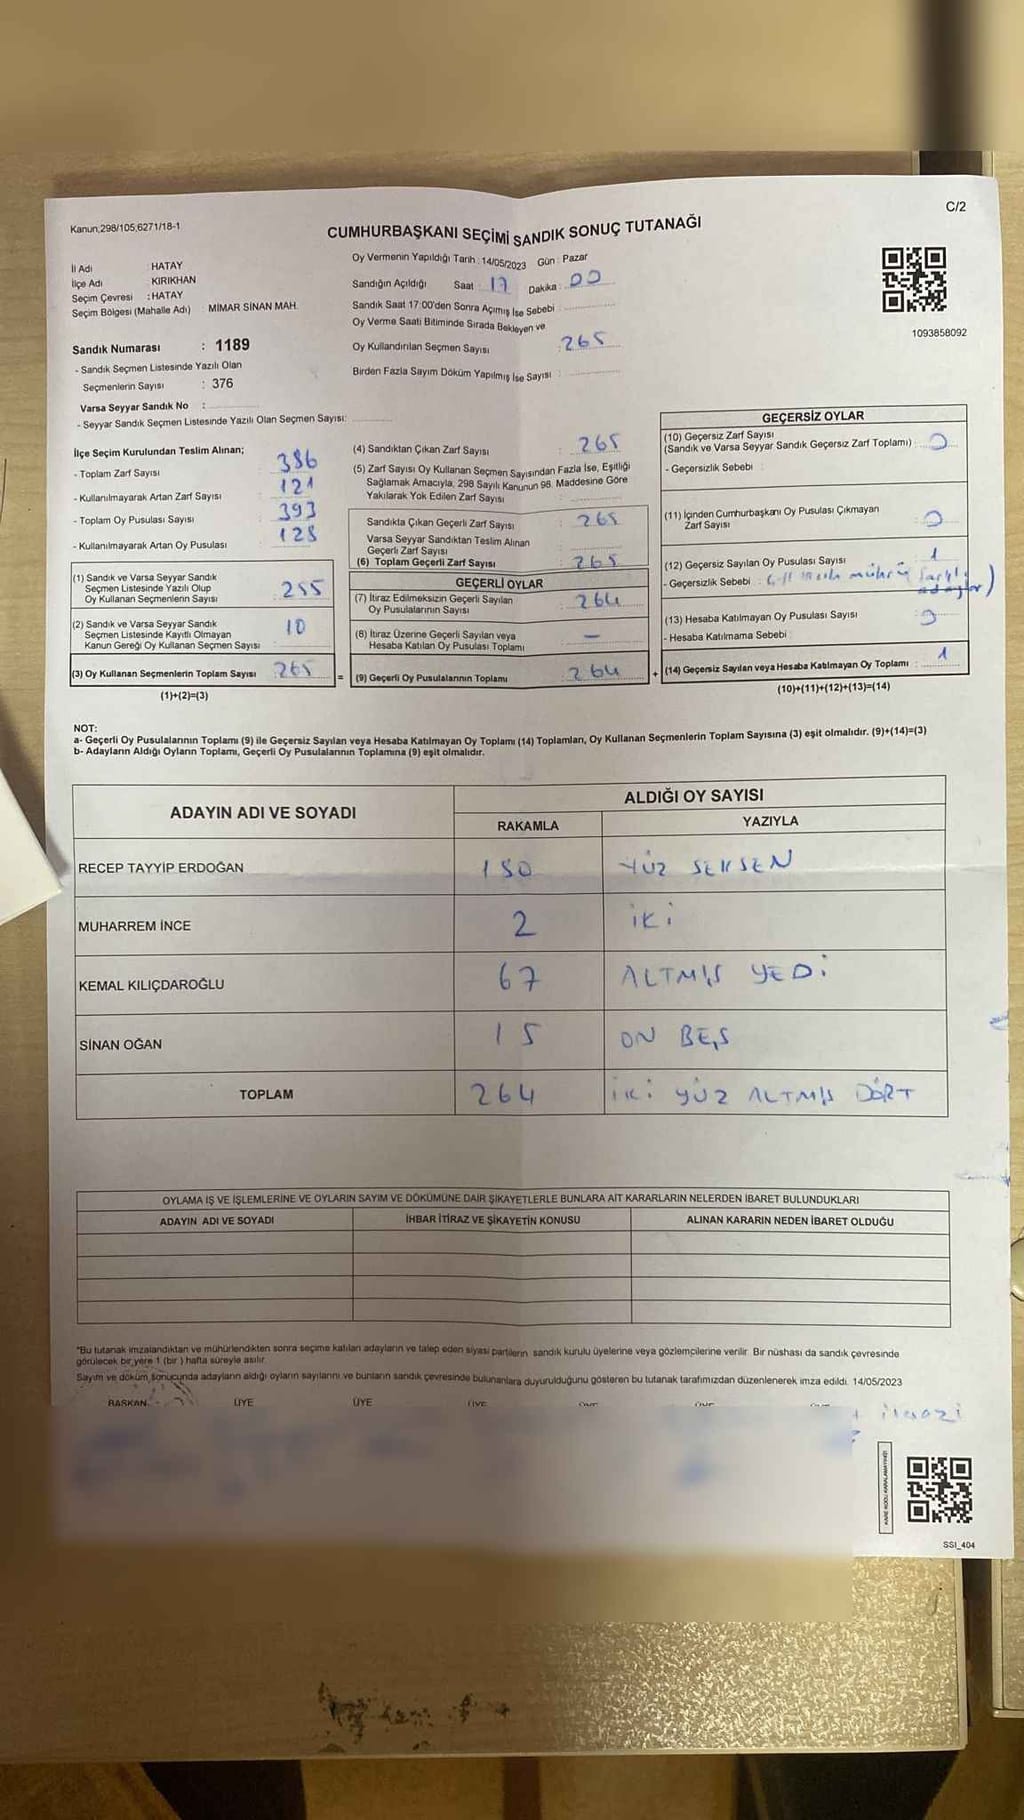 Kanun;298/105;6271/18-1
C/2
CUMHURBAŞKANI SEÇİMİ SANDIK SONUÇ TUTANAĞI
İl Adı : HATAY
İlçe Adı : KIRIKHAN
Seçim Çevresi : HATAY
Seçim Bölgesi (Mahalle Adı) MİMAR SİNAN MAH.
Sandık Numarası : 1189
- Sandık Seçmen Listesinde Yazılı Olan
Seçmenlerin Sayısı : 376
Varsa Seyyar Sandık No :
- Seyyar Sandık Seçmen Listesinde Yazılı Olan Seçmen Sayısı:
Oy Vermenin Yapıldığı Tarih : 14/05/2023 Gün : Pazar
Sandığın Açıldığı Saat 17 Dakika : 00
Sandık Saat 17:00'den Sonra Açımış İse Sebebi :
Oy Verme Saati Bitiminde Sırada Bekleyen ve
Oy Kullandırılan Seçmen Sayısı : 265
Birden Fazla Sayım Döküm Yapılmış İse Sayısı :
1093858092
İlçe Seçim Kurulundan Teslim Alınan;
- Toplam Zarf Sayısı : 386
- Kullanılmayarak Artan Zarf Sayısı : 121
- Toplam Oy Pusulası Sayısı : 393
- Kullanılmayarak Artan Oy Pusulası : 128
(1) Sandık ve Varsa Seyyar Sandık
Seçmen Listesinde Yazılı Olup
Oy Kullanan Seçmenlerin Sayısı : 255
(2) Sandık ve Varsa Seyyar Sandık
Seçmen Listesinde Kayıtlı Olmayan
Kanun Gereği Oy Kullanan Seçmen Sayısı : 10
(3) Oy Kullanan Seçmenlerin Toplam Sayısı : 265
(1)+(2)=(3)
(4) Sandıktan Çıkan Zarf Sayısı : 265
(5) Zarf Sayısı Oy Kullanan Seçmen Sayısından Fazla İse, Eşitliği
Sağlamak Amacıyla, 298 Sayılı Kanunun 98. Maddesine Göre
Yakılarak Yok Edilen Zarf Sayısı :
Sandıkta Çıkan Geçerli Zarf Sayısı : 265
Varsa Seyyar Sandıktan Teslim Alınan
Geçerli Zarf Sayısı :
(6) Toplam Geçerli Zarf Sayısı : 265
GEÇERLİ OYLAR
(7) İtiraz Edilmeksizin Geçerli Sayılan
Oy Pusulalarının Sayısı : 264
(8) İtiraz Üzerine Geçerli Sayılan veya
Hesaba Katılan Oy Pusulası Toplamı : –
= (9) Geçerli Oy Pusulalarının Toplamı : 264 +
GEÇERSİZ OYLAR
(10) Geçersiz Zarf Sayısı
(Sandık ve Varsa Seyyar Sandık Geçersiz Zarf Toplamı) : 0
- Geçersizlik Sebebi :
(11) İçinden Cumhurbaşkanı Oy Pusulası Çıkmayan
Zarf Sayısı : 0
(12) Geçersiz Sayılan Oy Pusulası Sayısı : 1
- Geçersizlik Sebebi : mührü
(13) Hesaba Katılmayan Oy Pusulası Sayısı : 0
- Hesaba Katılmama Sebebi :
(14) Geçersiz Sayılan veya Hesaba Katılmayan Oy Toplamı : 1
(10)+(11)+(12)+(13)=(14)
NOT:
a- Geçerli Oy Pusulalarının Toplamı (9) ile Geçersiz Sayılan veya Hesaba Katılmayan Oy Toplamı (14) Toplamları, Oy Kullanan Seçmenlerin Toplam Sayısına (3) eşit olmalıdır. (9)+(14)=(3)
b- Adayların Aldığı Oyların Toplamı, Geçerli Oy Pusulalarının Toplamına (9) eşit olmalıdır.
ADAYIN ADI VE SOYADI ALDIĞI OY SAYISI
RAKAMLA YAZIYLA
RECEP TAYYİP ERDOĞAN 180 YÜZ SEKSEN
MUHARREM İNCE 2 İKİ
KEMAL KILIÇDAROĞLU 67 ALTMIŞ YEDİ
SİNAN OĞAN 15 ON BEŞ
TOPLAM 264 İKİ YÜZ ALTMIŞ DÖRT
OYLAMA İŞ VE İŞLEMLERİNE VE OYLARIN SAYIM VE DÖKÜMÜNE DAİR ŞİKAYETLERLE BUNLARA AİT KARARLARIN NELERDEN İBARET BULUNDUKLARI
ADAYIN ADI VE SOYADI İHBAR İTİRAZ VE ŞİKAYETİN KONUSU ALINAN KARARIN NEDEN İBARET OLDUĞU
*Bu tutanak imzalandıktan ve mühürlendikten sonra seçime katılan adayların ve talep eden siyasi partilerin sandık kurulu üyelerine veya gözlemcilerine verilir. Bir nüshası da sandık çevresinde
görülecek bir yere 1 (bir ) hafta süreyle asılır.
Sayım ve döküm sonucunda adayların aldığı oyların sayılarını ve bunların sandık çevresinde bulunanlara duyurulduğunu gösteren bu tutanak tarafımızdan düzenlenerek imza edildi. 14/05/2023
BAŞKAN ÜYE ÜYE ÜYE
SSI_404